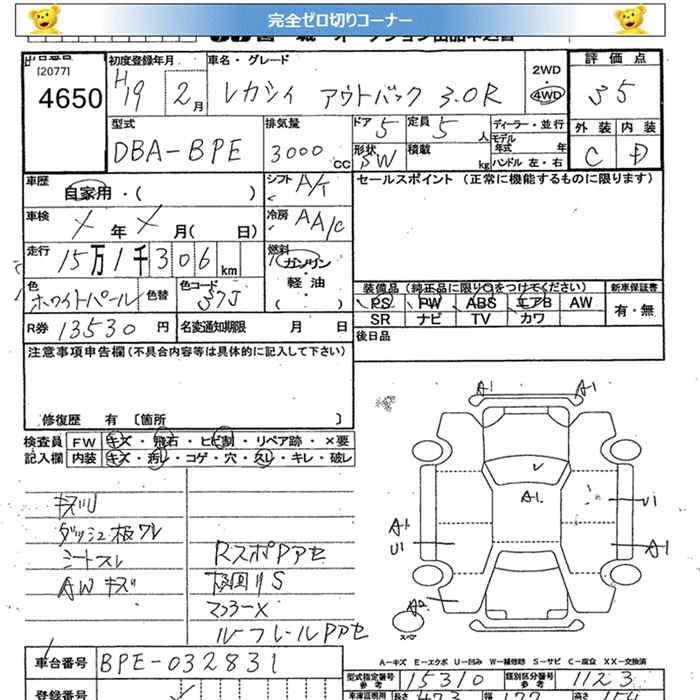 完全ゼロ切りコーナー
[2077]
4650
初度登録年月 H19 2月
車名・グレード レガシィ アウトバック 3.0R
2WD・4WD
評価点 35
型式 DBA-BPE
排気量 3000 CC
ドア 5
定員 5 人
形状 SW
積載 kg
ディーラー・並行
モデル年式 年
ハンドル 左・右
外装 C
内装 D
車歴 自家用・( )
シフト A/T
セールスポイント (正常に機能するものに限ります)
車検 年 月( 日)
冷房 AA/C
走行 15万1千306 km
燃料 ガソリン・軽油 ( )
色 ホワイトパール 色替
色コード 37J
装備品 (純正品に限り○をつけてください)
新車保証書
PS PW ABS エアB AW
有・無
SR ナビ TV カワ
R券 13530 円
名変通知期限 月 日
後日品
注意事項申告欄(不具合内容等は具体的に記入して下さい)
修復歴 有 〔箇所 〕
検査員 FW キズ・飛石・ヒビ割・リペア跡・×要
記入欄 内装 キズ・汚レ・コゲ・穴・スレ・キレ・破レ
ダッシュ板ワレ
シートスレ
AWキズ
RスポPアセ
マフラー×
ルーフレールPアセ
A1 A1
A1
U1
A1
U1
A1
A2
スペア
A-キズ E-エクボ U-凹み W-補修跡 S-サビ C-腐食 XX-交換済
車台番号 BPE-032831
型式指定番号 参考 15310
類別区分番号 参考 1123
登録番号
車庫証明用 長さ 473 幅 177 高さ 154